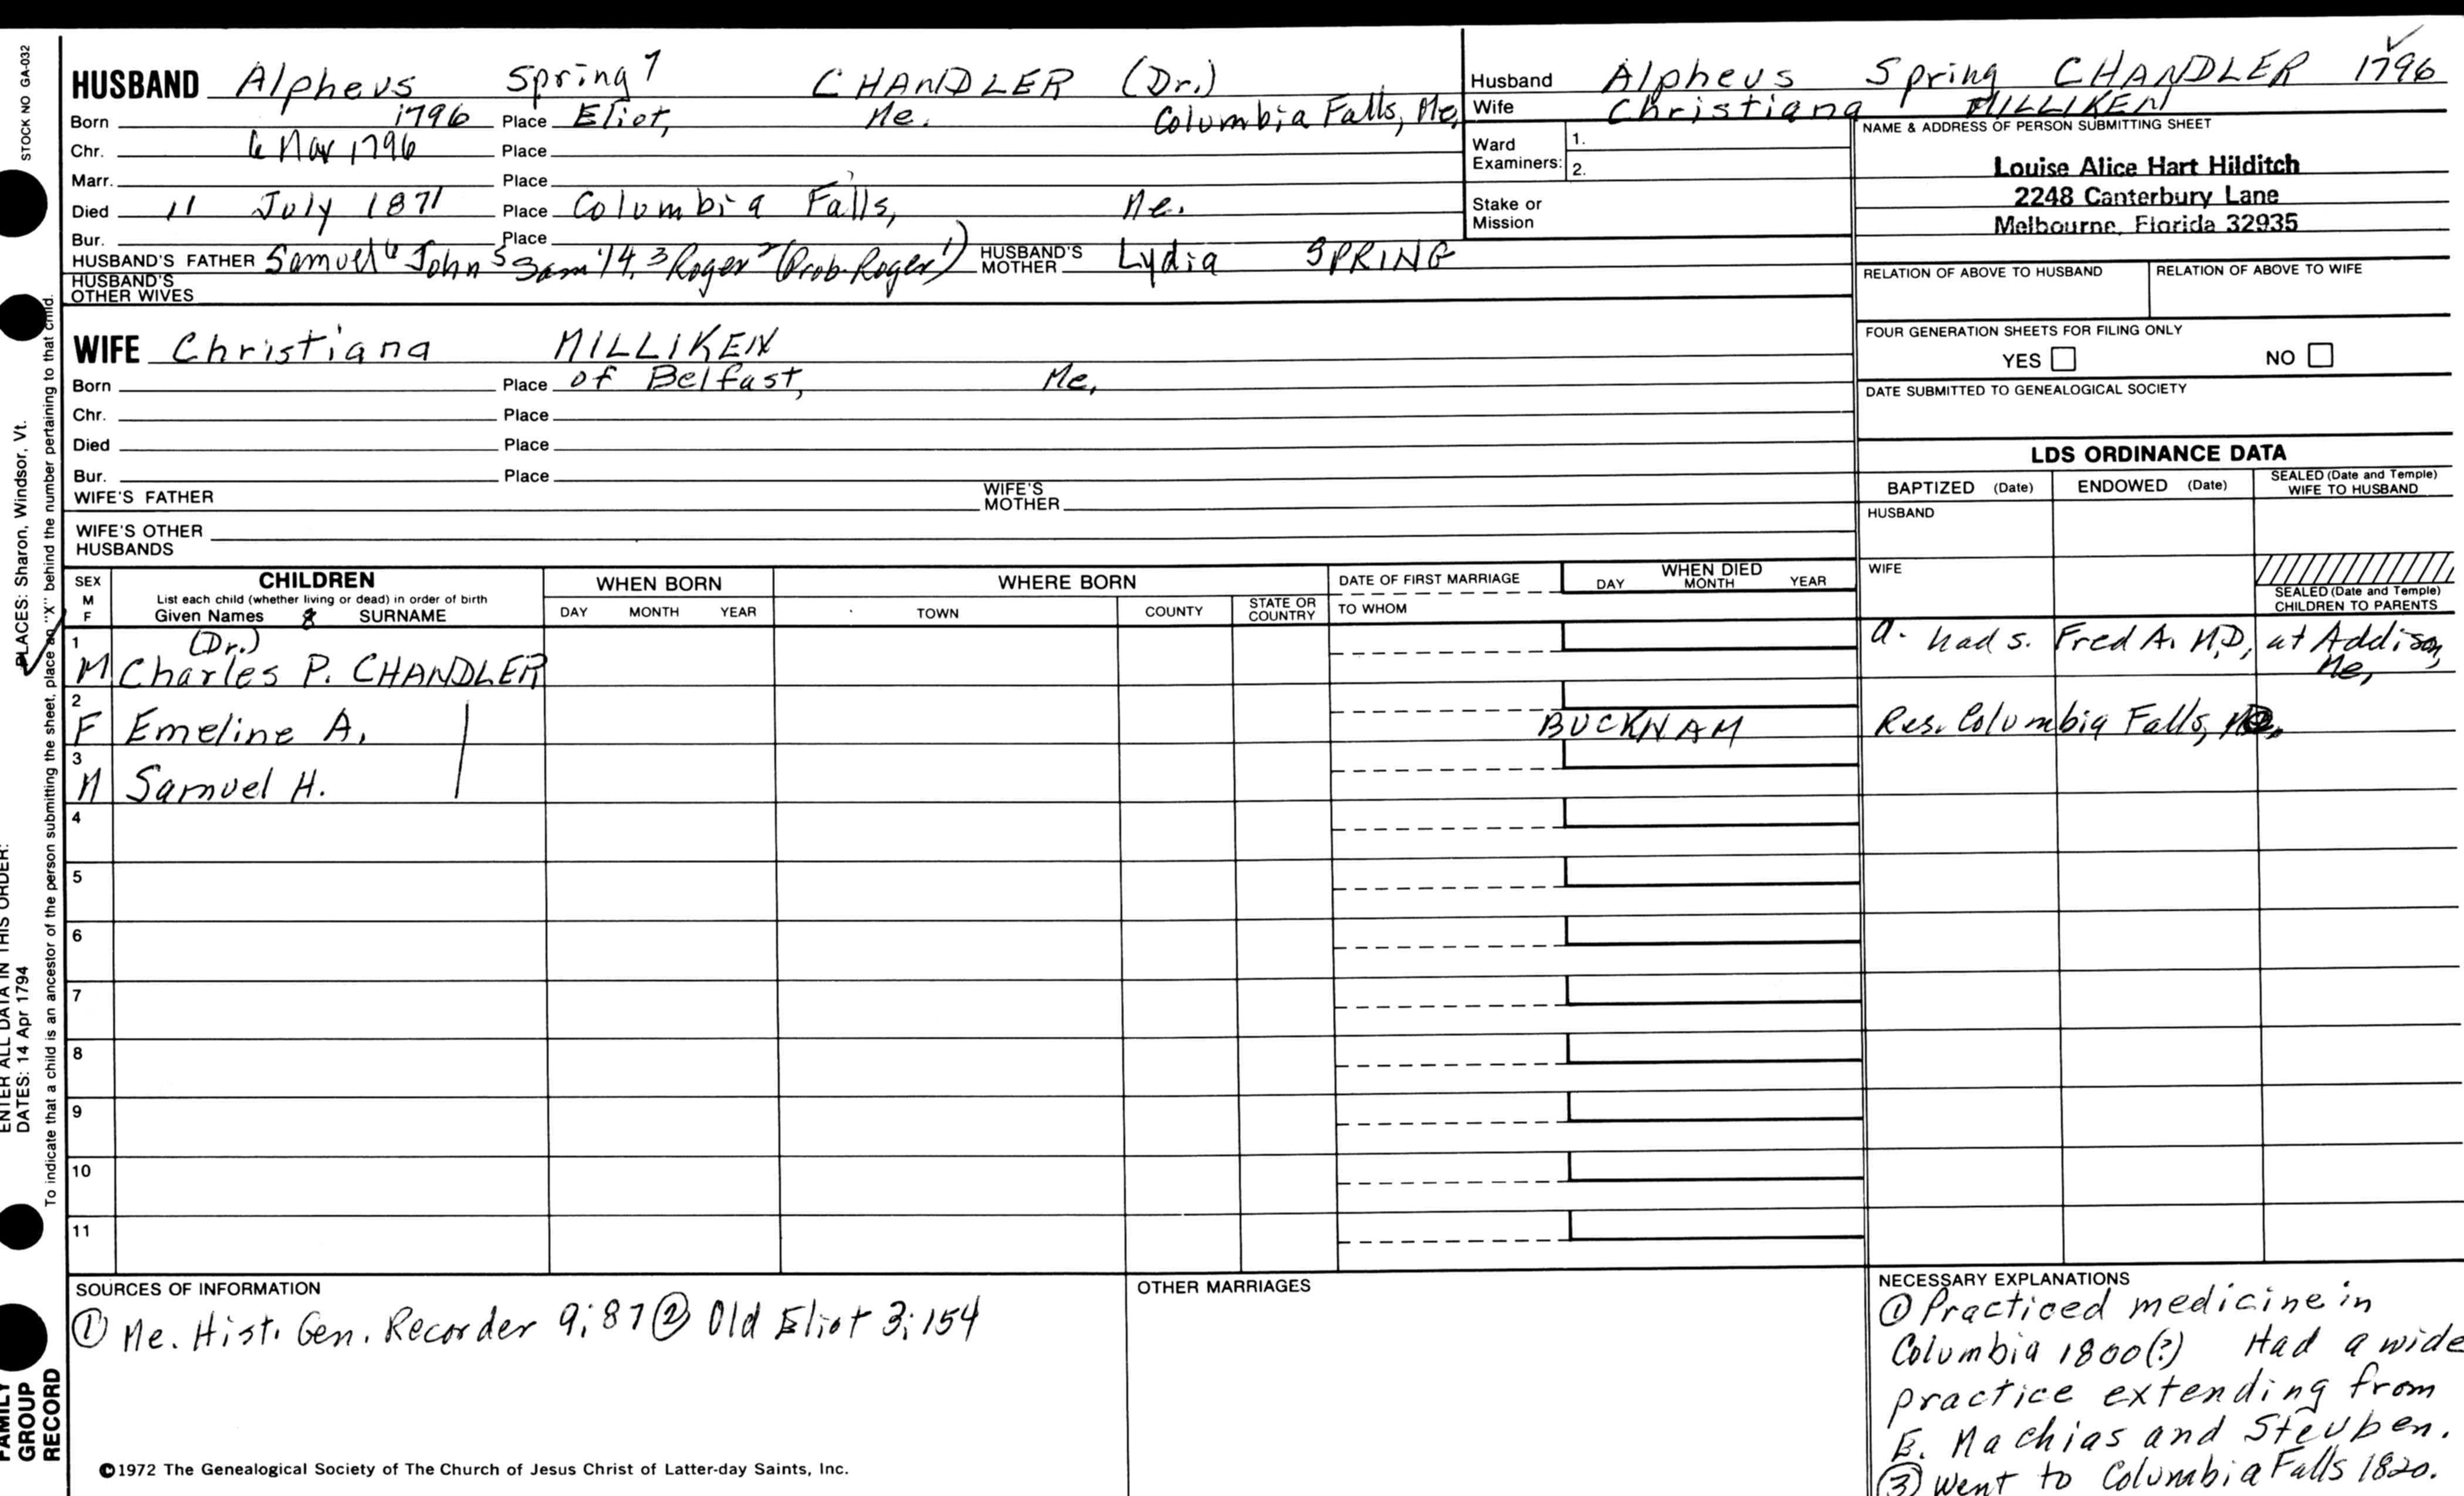 STOCK NO GA-032
PLACES: Sharon, Windsor, Vt.
ENTER ALL DATA IN THIS ORDER:
DATES: 14 Apr 1794
To indicate that a child is an ancestor of the person submitting the sheet, place an "X" behind the number pertaining to that child.
FAMILY
GROUP
RECORD
HUSBAND Alpheus Spring 7 CHANDLER (Dr.)
Born 1796 Place Eliot, Me. Columbia Falls, Me.
Chr. 6 Mar 1796 Place
Marr. Place
Died 11 July 1871 Place Columbia Falls, Me.
Bur. Place
HUSBAND'S FATHER Samuel 6 John 5 Sam'l 4, 3 Roger 2 (Prob. Roger 1) HUSBAND'S MOTHER Lydia SPRING
HUSBAND'S
OTHER WIVES
Husband Alpheus Spring CHANDLER 1796
Wife Christiana MILLIKEN
Ward
Examiners: 1.
2.
Stake or
Mission
NAME & ADDRESS OF PERSON SUBMITTING SHEET
Louise Alice Hart Hilditch
2248 Canterbury Lane
Melbourne, Florida 32935
RELATION OF ABOVE TO HUSBAND RELATION OF ABOVE TO WIFE
FOUR GENERATION SHEETS FOR FILING ONLY
YES NO
DATE SUBMITTED TO GENEALOGICAL SOCIETY
WIFE Christiana MILLIKEN
Born Place of Belfast, Me.
Chr. Place
Died Place
Bur. Place
WIFE'S FATHER WIFE'S MOTHER
WIFE'S OTHER
HUSBANDS
LDS ORDINANCE DATA
BAPTIZED (Date) ENDOWED (Date) SEALED (Date and Temple)
WIFE TO HUSBAND
HUSBAND
WIFE
SEALED (Date and Temple)
CHILDREN TO PARENTS
SEX
M
F
CHILDREN
List each child (whether living or dead) in order of birth
Given Names SURNAME
WHEN BORN
DAY MONTH YEAR
WHERE BORN
TOWN COUNTY STATE OR COUNTRY
DATE OF FIRST MARRIAGE
TO WHOM
WHEN DIED
DAY MONTH YEAR
1 M (Dr.) Charles P. CHANDLER a. had s. Fred A. M.D, at Addison, Me,
2 F Emeline A. BUCKNAM Res. Columbia Falls, Me.
3 M Samuel H.
4
5
6
7
8
9
10
11
SOURCES OF INFORMATION
① Me. Hist. Gen. Recorder 9:87 ② Old Eliot 3:154
OTHER MARRIAGES
NECESSARY EXPLANATIONS
① Practiced medicine in
Columbia 1800(?) Had a wide
practice extending from
E. Machias and Steuben.
③ Went to Columbia Falls 1820.
©1972 The Genealogical Society of The Church of Jesus Christ of Latter-day Saints, Inc.